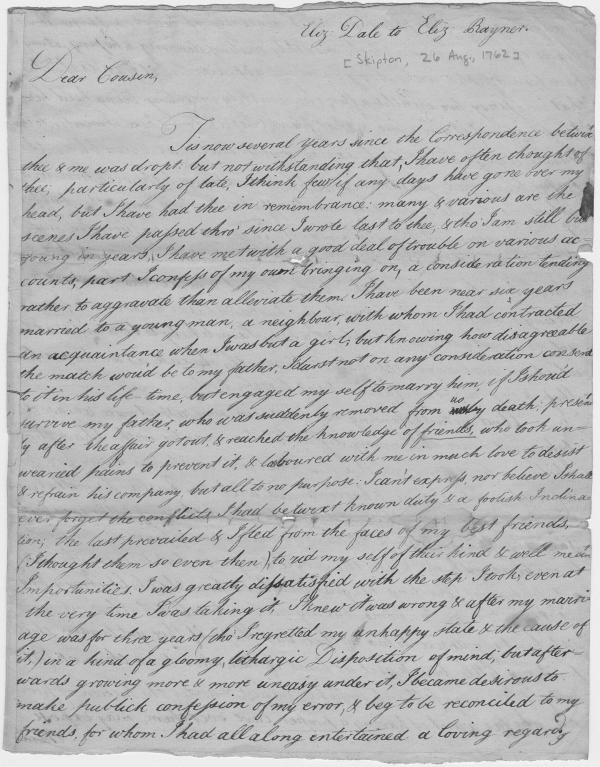 Eliz Dale to Eliz Rayner.
[Skipton, 26 Aug., 1762]
Dear Cousin,
Tis now several Years since the Correspondence betwixt
thee & me was dropt: but not withstanding that, I have often thought of
thee, particularly of late, I think few if any days have gone over my
head, but I have had thee in remembrance: many & various are the
scenes I have passed thro' since I wrote last to thee, & tho' I am still but
young in years, I have met with a good deal of trouble on various ac-
counts, part I confess of my own bringing on, a consideration tending
rather to aggravate than alleviate them. I have been near six years
married to a young man, a neighbour, with whom I had contracted
an acquaintance when I was but a girl; but knowing how disagreeable
the match wou'd be to my father, I darst not on any consideration consent
to it in his life-time, but engaged my self to marry him, if I shou'd
survive my father, who was suddenly removed from no by death; present
ly after the affair got out, & reached the knowledge of friends, who took un-
wearied pains to prevent it, & laboured with me in much love to desist
& refrain his company, but all to no purpose: I can't express, nor believe I shall
ever forget the conflicts I had betwixt known duty & a foolish Inclina
tion; the last prevailed & I fled from the faces of my best friends,
(I thought them so even then) to rid my self of their kind & well mean
Importunities. I was greatly dissatisfied with the step I took; even at
the very time I was taking it, I knew it was wrong & after my marri
age was for three years (tho' I regretted my unhappy state & the cause of
it,) in a kind of a gloomy, lithargic Disposition of mind; but after-
wards growing more & more uneasy under it, I became desirous to
make publick confession of my error, & beg to be reconciled to my
friends, for whom I had all along entertained a loving regard